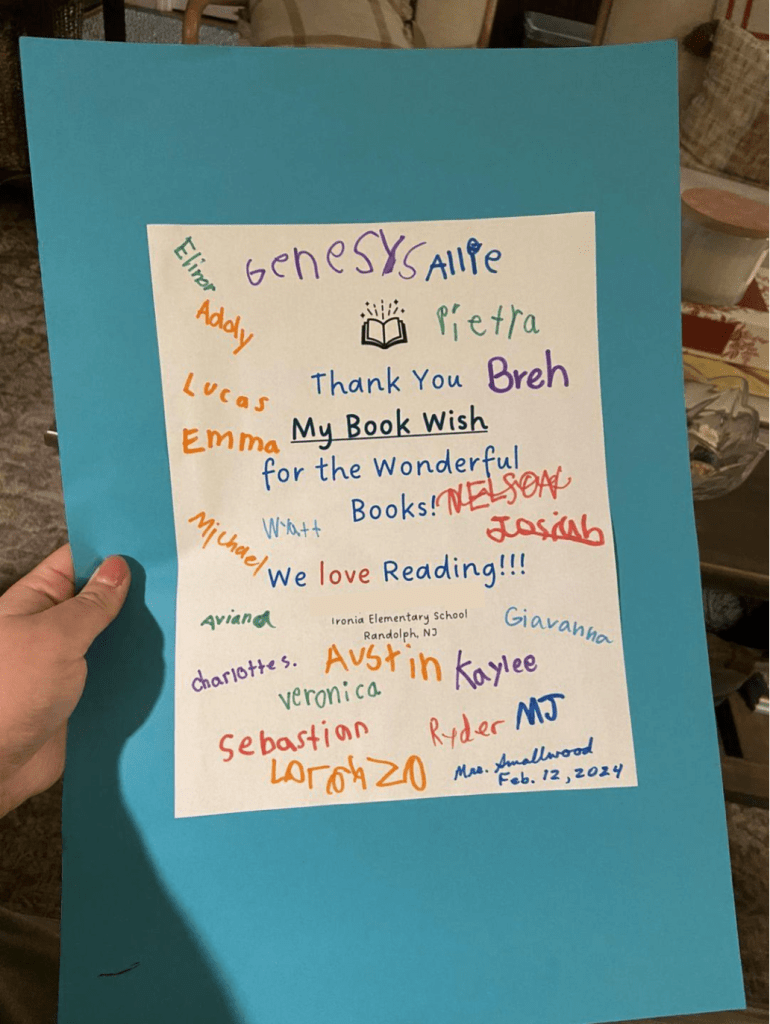 Elinor
Genesys Allie
Addy
Pietra
Thank You Breh
Lucas
My Book Wish
Emma
for the Wonderful
Books! NELSON
Wyatt
Josiah
Michael
We love Reading!!!
Ironia Elementary School
Randolph, NJ
Giavanna
Charlotte S.
Austin Kaylee
Veronica
Sebastian
Ryder MJ
Mrs. Smallwood
Feb. 12, 2024